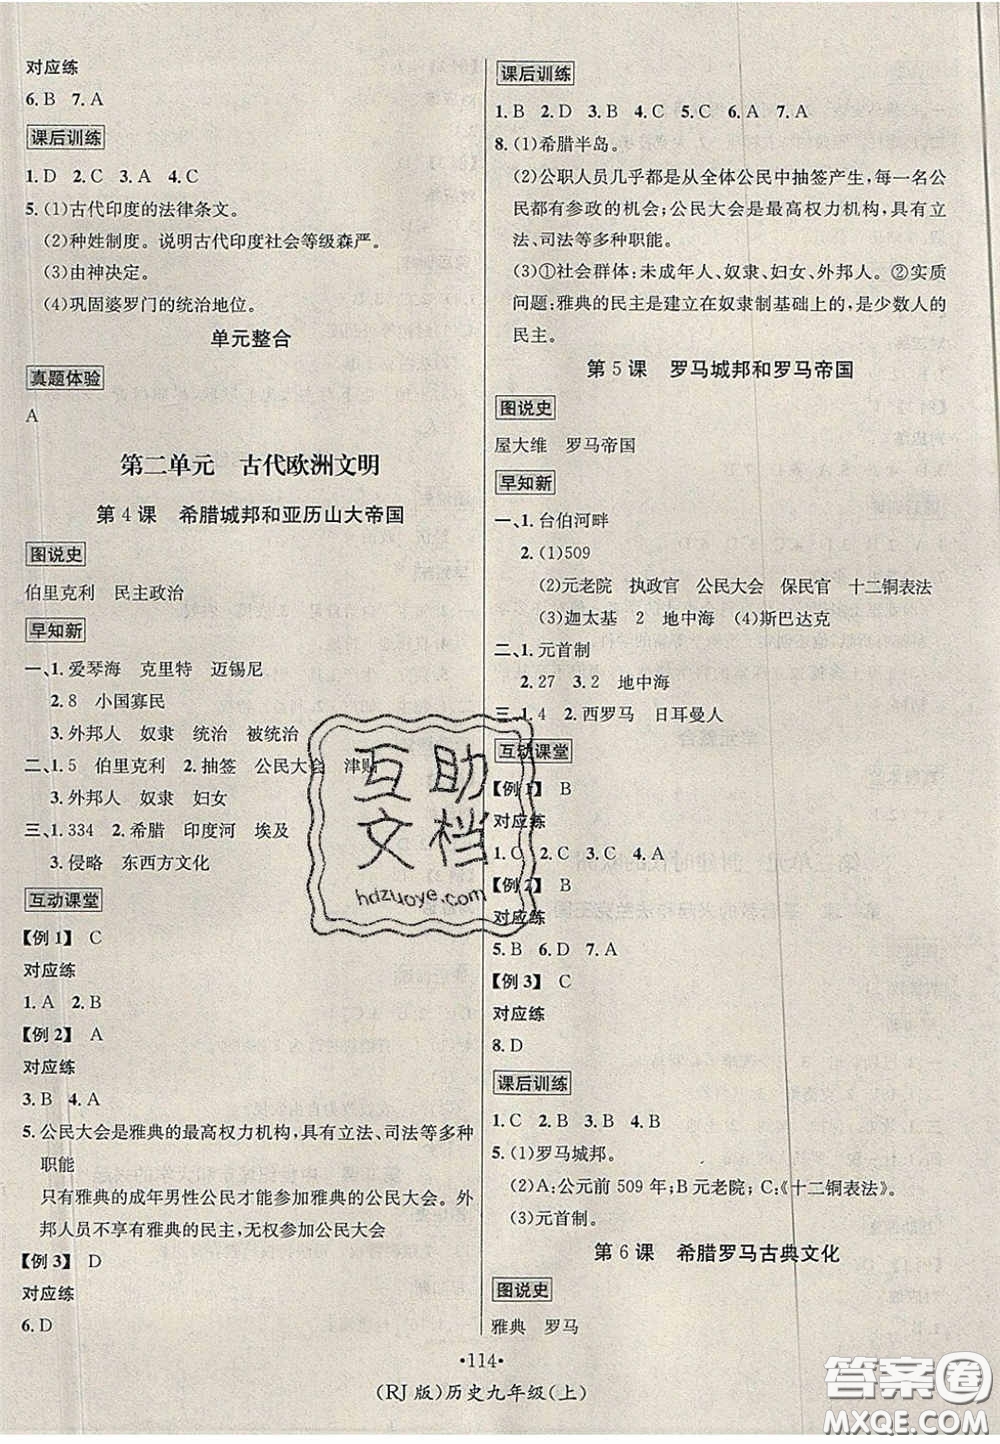 对应练
6.B 7.A
课后训练
1.D 2.C 3.A 4.C
5.(1)古代印度的法律条文。
(2)种姓制度。说明古代印度社会等级森严。
(3)由神决定。
(4)巩固婆罗门的统治地位。
单元整合
真题体验
A
第二单元 古代欧洲文明
第4课 希腊城邦和亚历山大帝国
图说史
伯里克利 民主政治
早知新
一、1.爱琴海 克里特 迈锡尼
2.8 小国寡民
3.外邦人 奴隶 统治 被统治
二、1.5 伯里克利 2.抽签 公民大会 津贴
3.外邦人 奴隶 妇女
三、1.334 2.希腊 印度河 埃及
3.侵略 东西方文化
互动课堂
【例1】 C
对应练
1.A 2.B
【例2】 A
对应练
3.B 4.A
5.公民大会是雅典的最高权力机构,具有立法、司法等多种
职能
只有雅典的成年男性公民才能参加雅典的公民大会。外
邦人员不享有雅典的民主,无权参加公民大会
【例3】 D
对应练
6.D
课后训练
1.B 2.D 3.B 4.C 5.C 6.A 7.A
8.(1)希腊半岛。
(2)公职人员几乎都是从全体公民中抽签产生,每一名公
民都有参政的机会;公民大会是最高权力机构,具有立
法、司法等多种职能。
(3)①社会群体:未成年人、奴隶、妇女、外邦人。②实质
问题:雅典的民主是建立在奴隶制基础上的,是少数人的
民主。
第5课 罗马城邦和罗马帝国
图说史
屋大维 罗马帝国
早知新
一、1.台伯河畔
2.(1)509
(2)元老院 执政官 公民大会 保民官 十二铜表法
(3)迦太基 2 地中海 (4)斯巴达克
二、1.元首制
2.27 3.2 地中海
三、1.4 2.西罗马 日耳曼人
互动课堂
【例1】 B
对应练
1.C 2.C 3.C 4.A
【例2】 B
对应练
5.B 6.D 7.A
【例3】 C
对应练
8.D
课后训练
1.C 2.B 3.B 4.B
5.(1)罗马城邦。
(2)A:公元前509年;B元老院;C:《十二铜表法》。
(3)元首制。
第6课 希腊罗马古典文化
图说史
雅典 罗马
·114·
(RJ版)历史九年级(上)
互助
文档
hdzuoye.com
答案圈
MXQE.COM